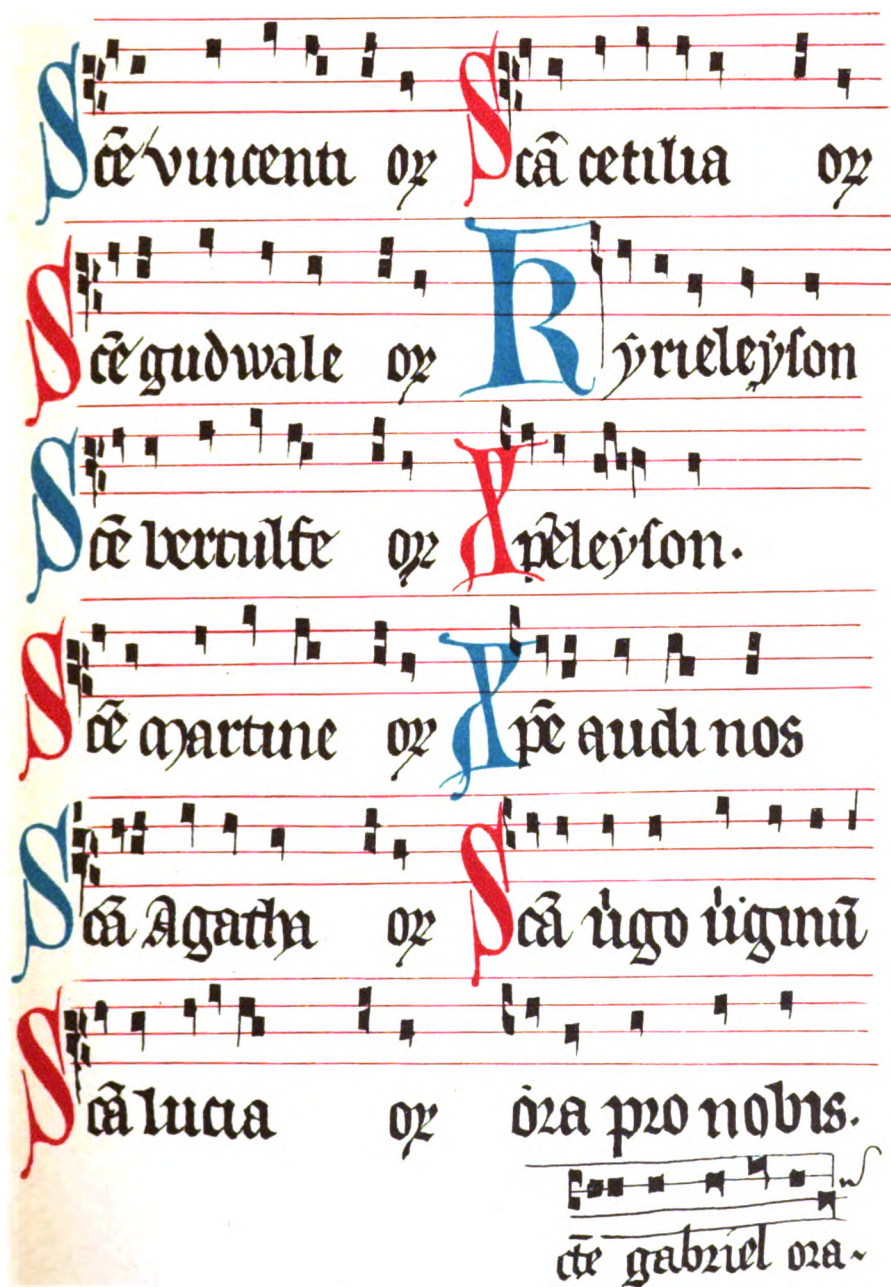 Scē vincenti oꝝ
Scē gudwale oꝝ
Scē bertulfe oꝝ
Scē martine oꝝ
Scā Agatha oꝝ
Scā lucia oꝝ
Scā cetilia oꝝ
Kyrieleyson
Xp̄eleyson.
Xp̄e audi nos
Scā v̾go v̾ginū
ora pro nobis.
cte gabriel ora~